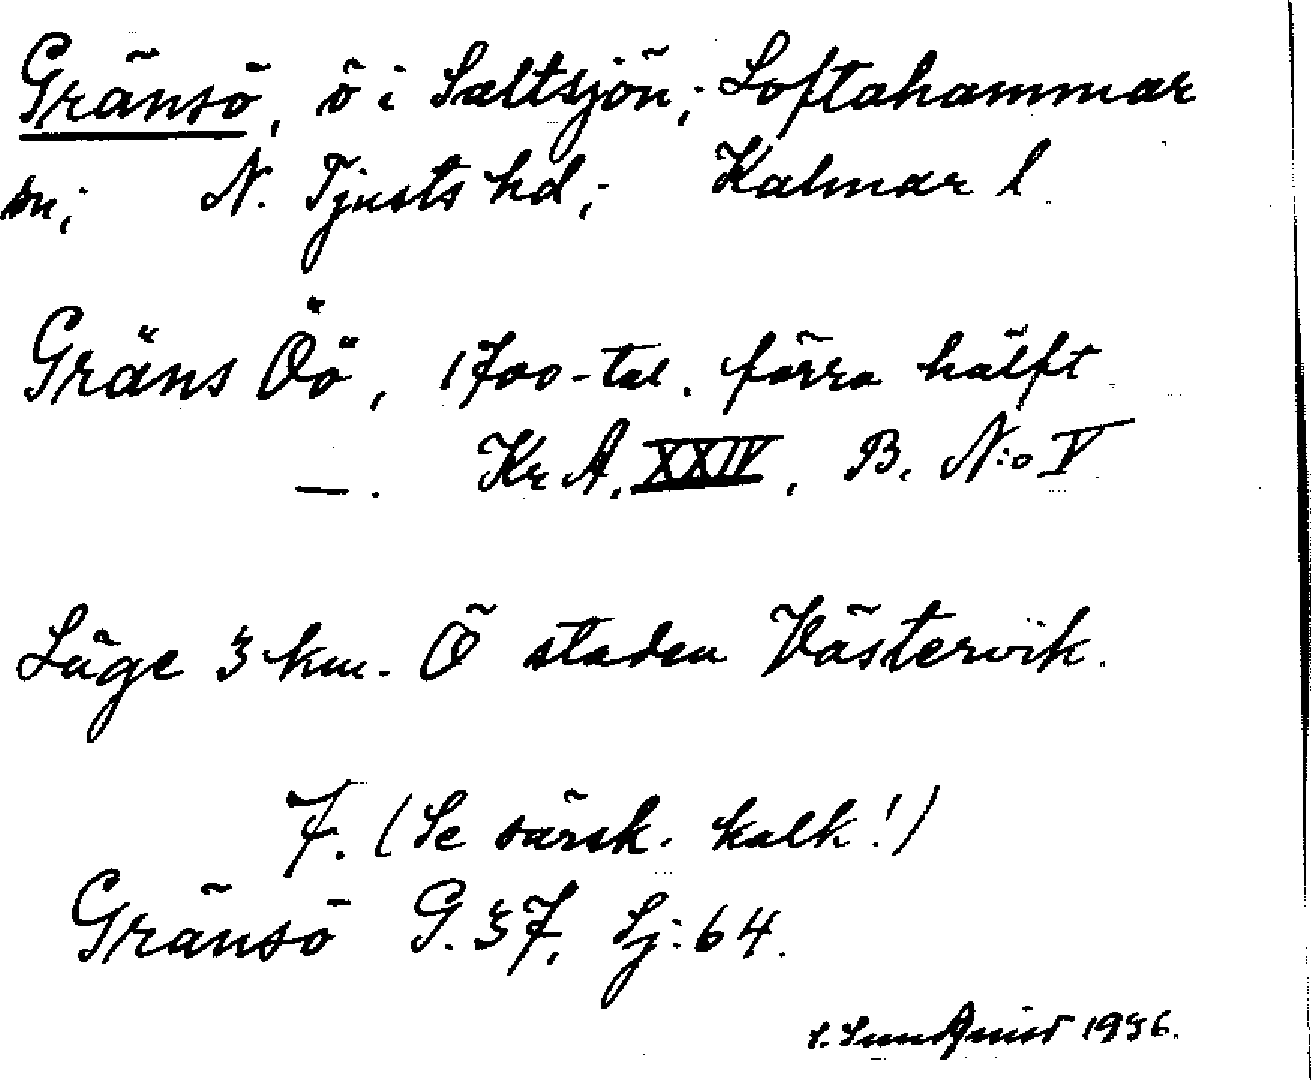 Gränsö, ö i Saltsjön; Loftahammar
sn; N. Tjusts hd; Kalmar l.
Gräns Öö, 1700-tal. förra hälft
—. Kr A. XXIV, B. N:o V
Läge 3 km. Ö staden Västervik.
7. (Se särsk. kalk!)
Gränsö G. 37, Sj: 64.
S. Sundquist 1936.